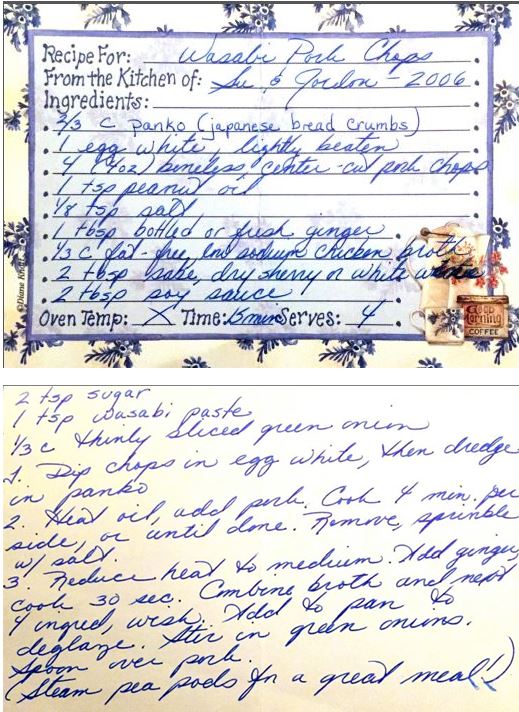 Recipe For: Wasabi Pork Chops
From the Kitchen of: Su & Gordon - 2006
Ingredients:
2/3 c panko (japanese bread crumbs)
1 egg white lightly beaten
4 (4oz) boneless center-cut pork chops
1 tsp peanut oil
1/8 tsp salt
1 tbsp bottled or fresh ginger
1/3 c fat-free, low sodium chicken broth
2 tbsp sake, dry sherry or white
2 tbsp soy sauce
Oven Temp: X Time: 15 min Serves: 4
©Diane Knott
Good Morning
COFFEE
2 tsp sugar
1 tsp wasabi paste
1/3 c thinly sliced green onion
1. Dip chops in egg white, then dredge
in panko
2. Heat oil, add pork. Cook 4 min. per
side, or until done. Remove, sprinkle
w/ salt.
3. Reduce heat to medium. Add ginger,
cook 30 sec. Combine broth and next
4 ingred, wisk. Add to pan to
deglaze. Stir in green onions.
Spoon over pork.
(Steam pea pods for a great meal!)